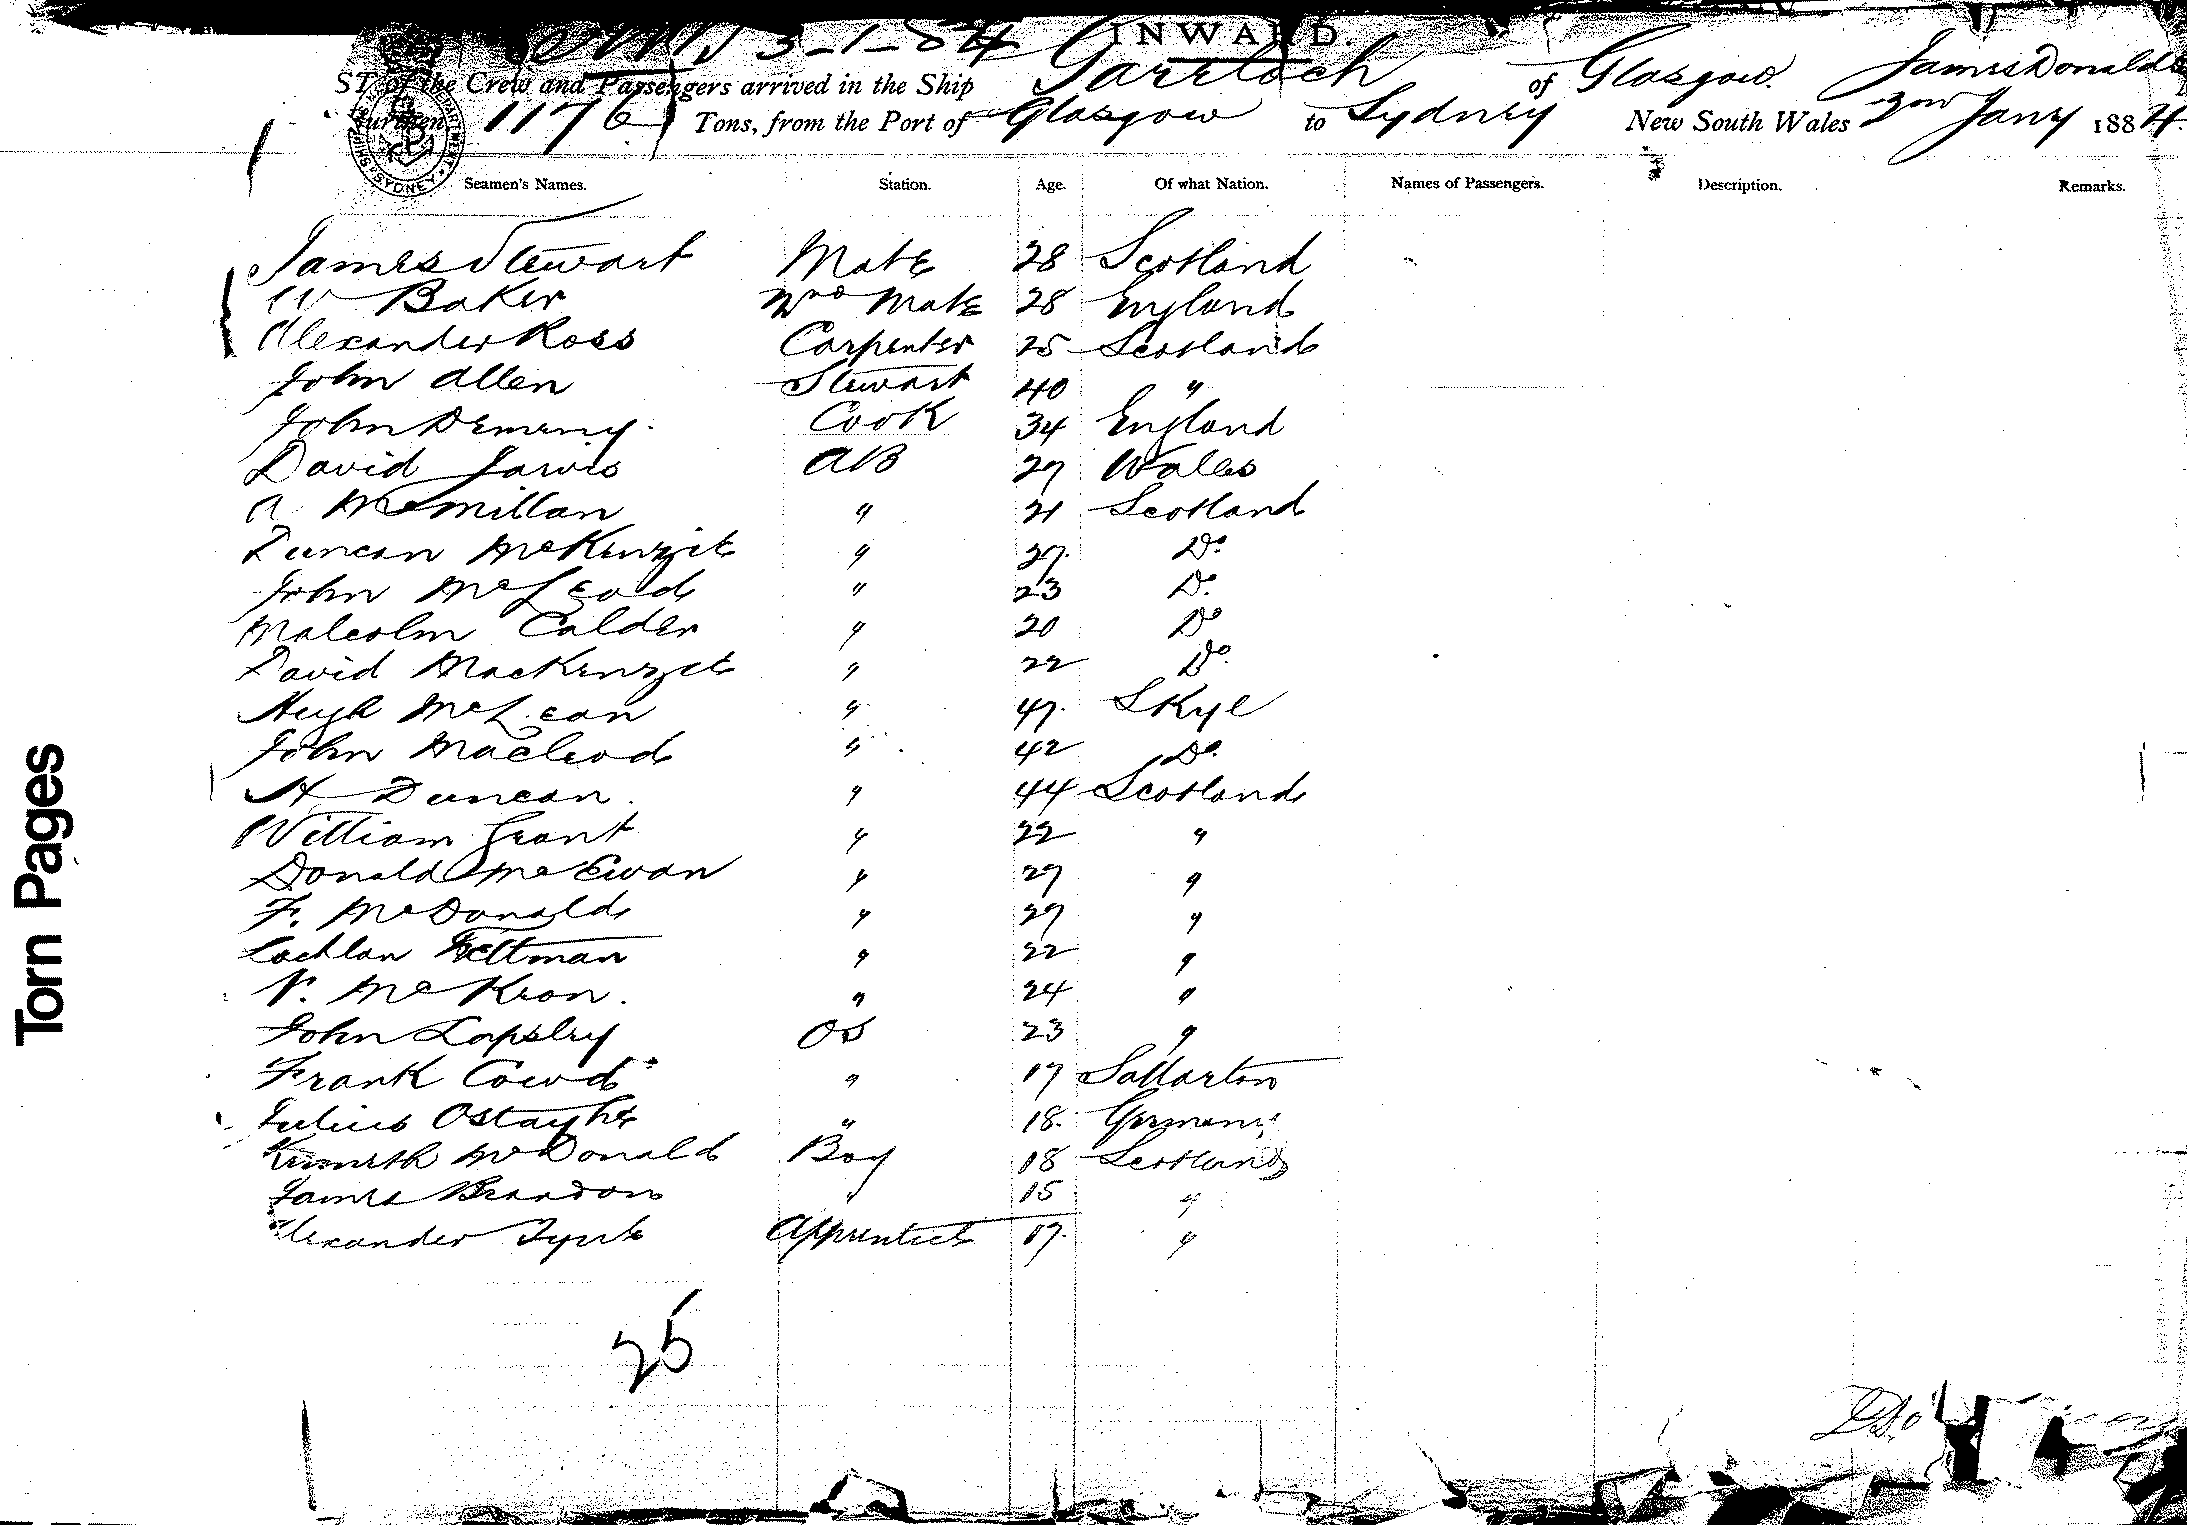 INWARD.
3-1-84
ST of the Crew and Passengers arrived in the Ship Gairloch of Glasgow. James Donald
Burthen 1176 Tons, from the Port of Glasgow to Sydney New South Wales 3rd Jany 1884.
SYDNEY
Seamen's Names. Station. Age. Of what Nation. Names of Passengers. Description. Remarks.
James Stewart Mate 28 Scotland
W Baker 2nd Mate 28 England
Alexander Ross Carpenter 25 Scotland
John Allen Stewart 40 "
John Cook 34 England
David Jarvis AB 27 Wales
A McMillan " 21 Scotland
Duncan McKenzie " 27. Do
John McLeod " 23 Do
Malcolm Calder " 20 Do
David MacKenzie " 22 Do
Hugh McLean " 47. Skye
John Macleod " 42 Do
A Duncan. " 44 Scotland
William Grant " 22 "
Donald McEwan " 27 "
F. McDonald " 27 "
Lachlan " 22 "
N. McKion. " 24 "
John Lapsley OS 23 "
Frank Cowd " 17
Julius " 18. Germany
Kenneth McDonald Boy 18 Scotland
James Brandon " 15 "
Alexander Apprentice 17. "
25
Torn Pages